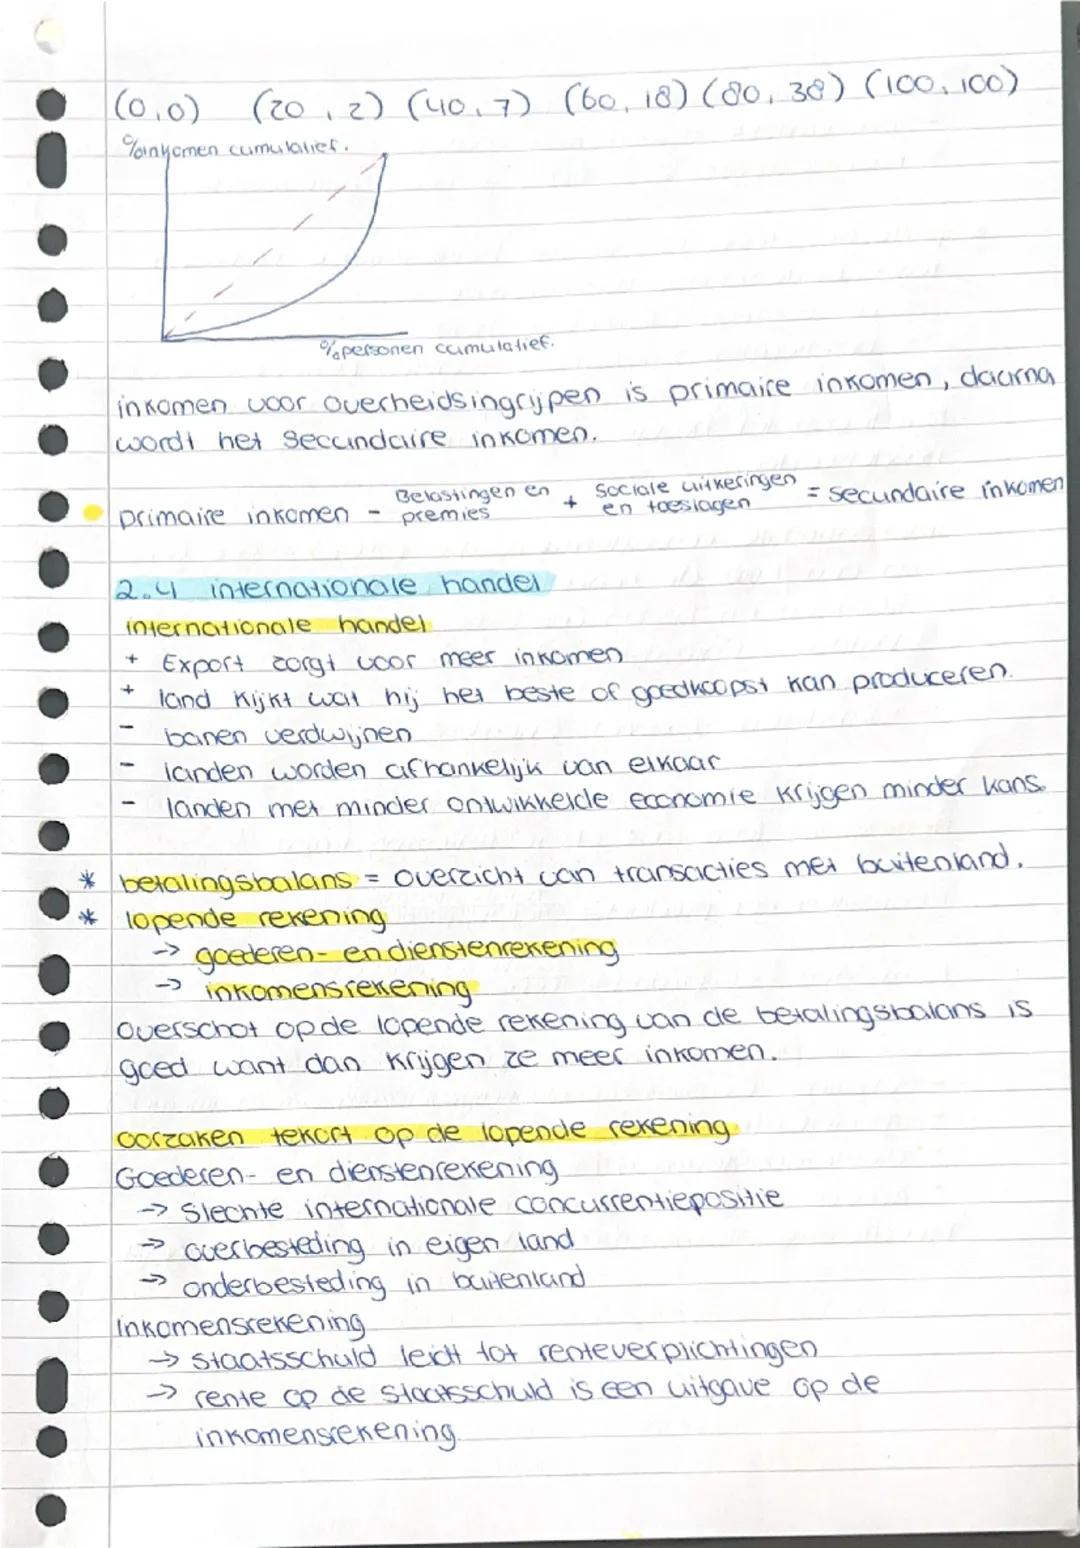 (0,0) (20,2) (40,7) (60,18) (80,38) (100,100)
% inkomen cumulatief.
% personen cumulatief.
inkomen voor overheidsingrijpen is primaire inkomen, daarna
wordt het secundaire inkomen.
primaire inkomen - Belastingen en premies + Sociale uitkeringen en toeslagen = secundaire inkomen
2.4 internationale handel
internationale handel
+ Export zorgt voor meer inkomen
+ land kijkt wat hij het beste of goedkoopst kan produceren.
- banen verdwijnen
- landen worden afhankelijk van elkaar
- landen met minder ontwikkelde economie krijgen minder kans.
* betalingsbalans = overzicht van transacties met buitenland.
* lopende rekening
-> goederen- en dienstenrekening
-> inkomensrekening
Overschot op de lopende rekening van de betalingsbalans is
goed want dan krijgen ze meer inkomen.
oorzaken tekort op de lopende rekening
Goederen- en dienstenrekening
-> Slechte internationale concurrentiepositie
-> overbesteding in eigen land
-> onderbesteding in buitenland
Inkomensrekening
-> staatsschuld leidt tot renteverplichtingen
-> rente op de staatsschuld is een uitgave op de
inkomensrekening.